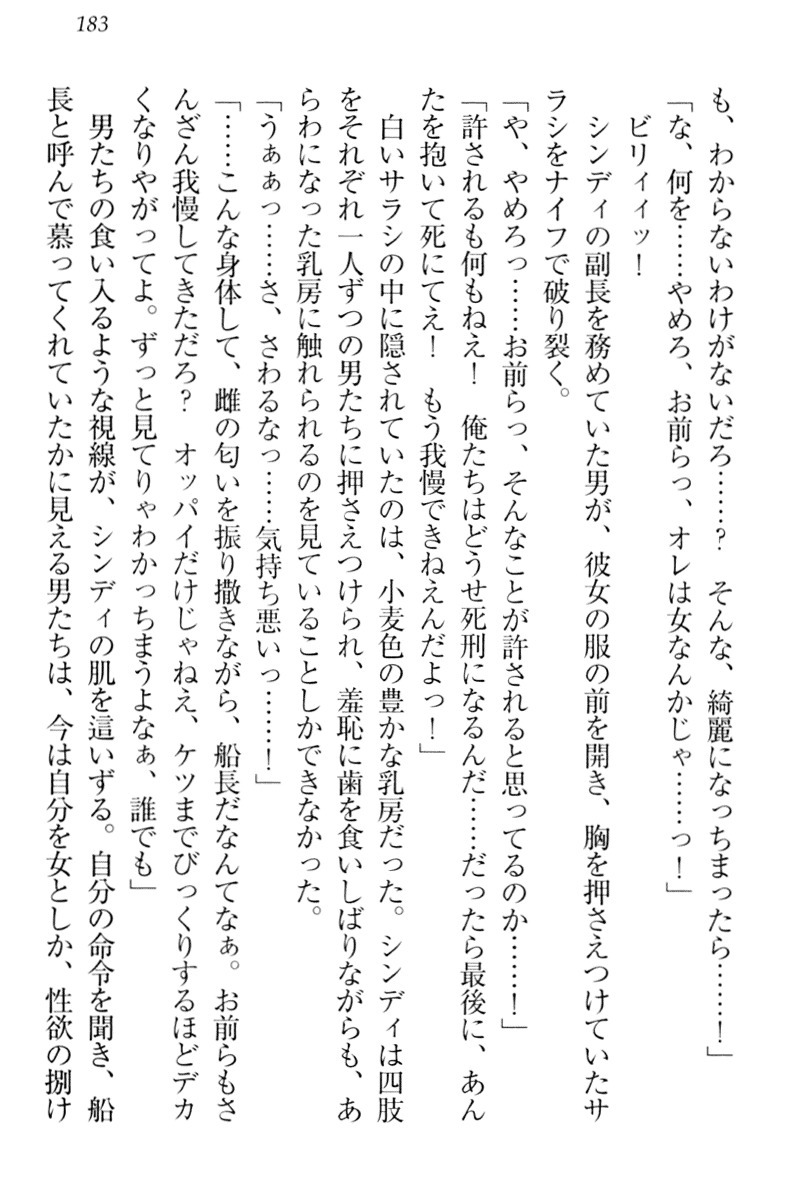 183
も、わからないわけがないだろ……？　そんな、綺麗になっちまったら……！」
「な、何を……やめろ、お前らっ、オレは女なんかじゃ……っ！」
ビリィィッ！
シンディの副長を務めていた男が、彼女の服の前を開き、胸を押さえつけていたサ
ラシをナイフで破り裂く。
「や、やめろっ……お前らっ、そんなことが許されると思ってるのか……！」
「許されるも何もねえ！　俺たちはどうせ死刑になるんだ……だったら最後に、あん
たを抱いて死にてえ！　もう我慢できねえんだよっ！」
白いサラシの中に隠されていたのは、小麦色の豊かな乳房だった。シンディは四肢
をそれぞれ一人ずつの男たちに押さえつけられ、羞恥に歯を食いしばりながらも、あ
らわになった乳房に触れられるのを見ていることしかできなかった。
「うぁぁっ……さ、さわるなっ……気持ち悪いっ……！」
「……こんな身体して、雌の匂いを振り撒きながら、船長だなんてなぁ。お前らもさ
んざん我慢してきただろ？　オッパイだけじゃねえ、ケツまでびっくりするほどデカ
くなりやがってよ。ずっと見てりゃわかっちまうよなぁ、誰でも」
男たちの食い入るような視線が、シンディの肌を這いずる。自分の命令を聞き、船
長と呼んで慕ってくれていたかに見える男たちは、今は自分を女としか、性欲の捌け